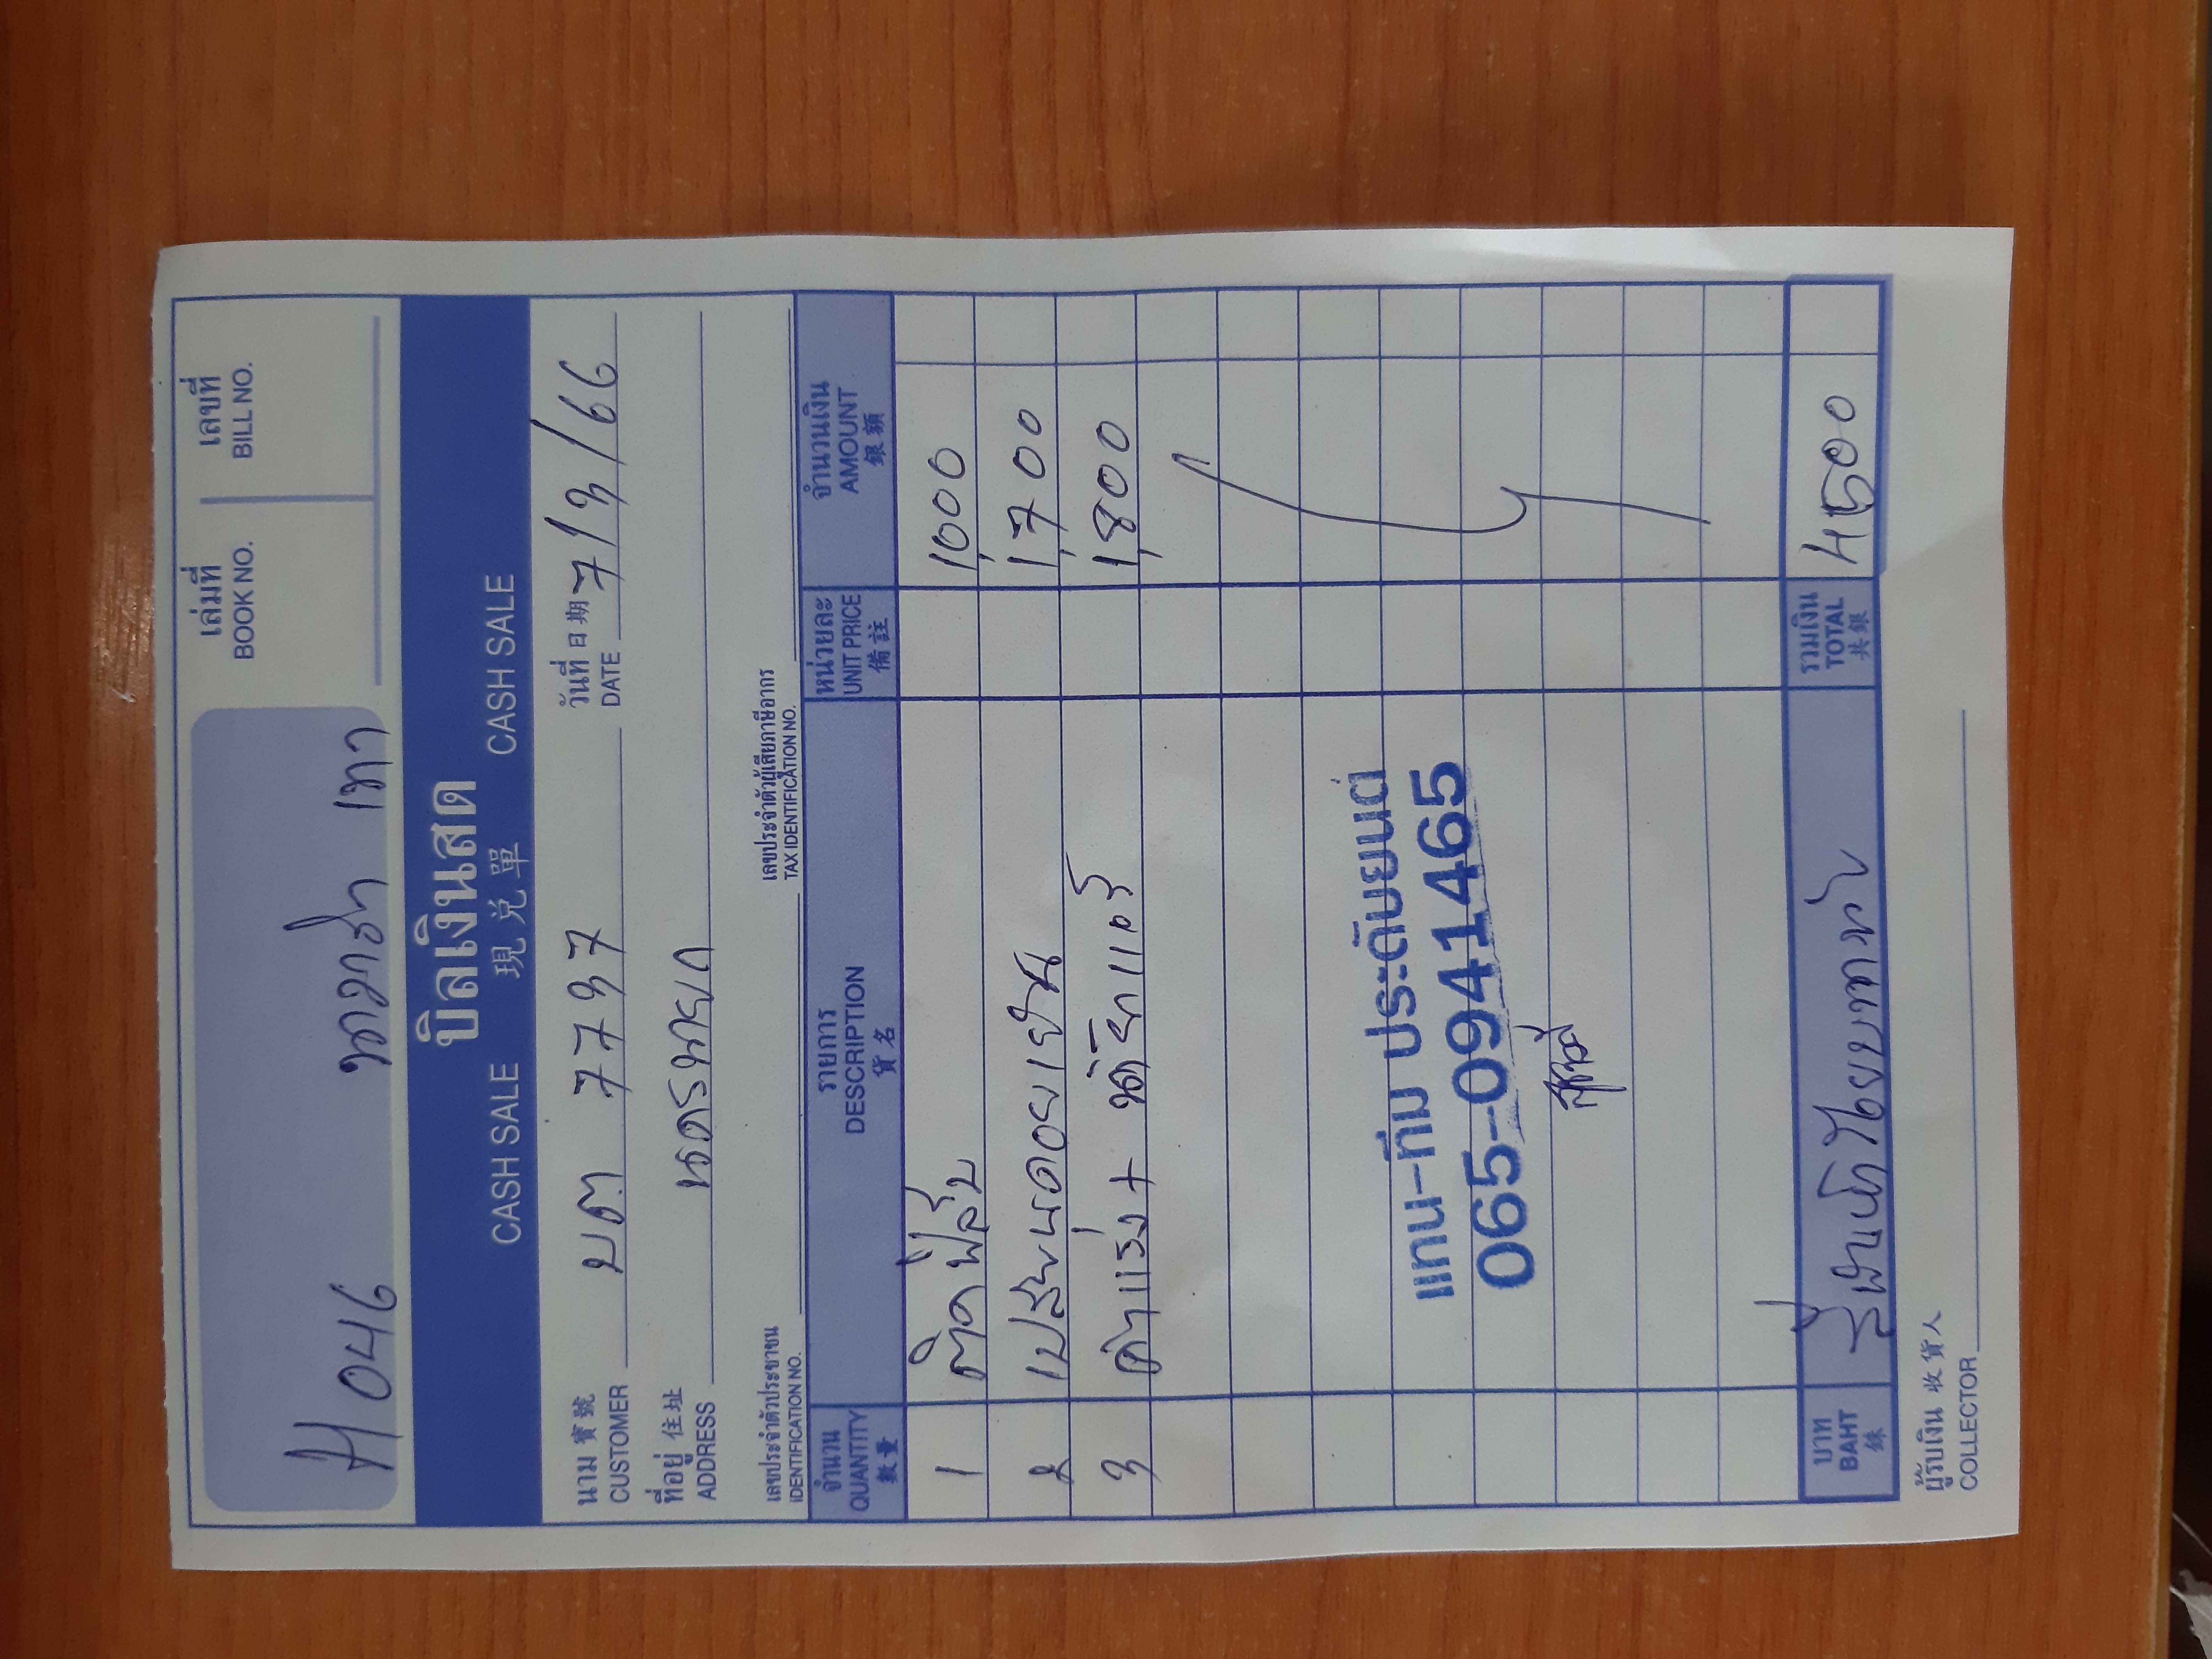 เล่มที่ เลขที่
BOOK NO. BILL NO.
H046
บิลเงินสด
CASH SALE 現兌單 CASH SALE
นาม 寶號 วันที่ 日期
CUSTOMER บต 7737 DATE 7/3/66
ที่อยู่ 住址
ADDRESS นครนายก
เลขประจำตัวประชาชน เลขประจำตัวผู้เสียภาษีอากร
IDENTIFICATION NO. TAX IDENTIFICATION NO.
จำนวน รายการ หน่วยละ จำนวนเงิน
QUANTITY DESCRIPTION UNIT PRICE AMOUNT
數量 貨名 備註 銀額
1 ติดฟิล์ม 1,000
2 1,700
3 ค่าแรง + 1,800
แทน-ทีม ประดับยนต์
065-0941465
บาท รวมเงิน
BAHT สี่พันห้าร้อยบาทถ้วน TOTAL 4500
銖 共銀
ผู้รับเงิน 收貨人
COLLECTOR